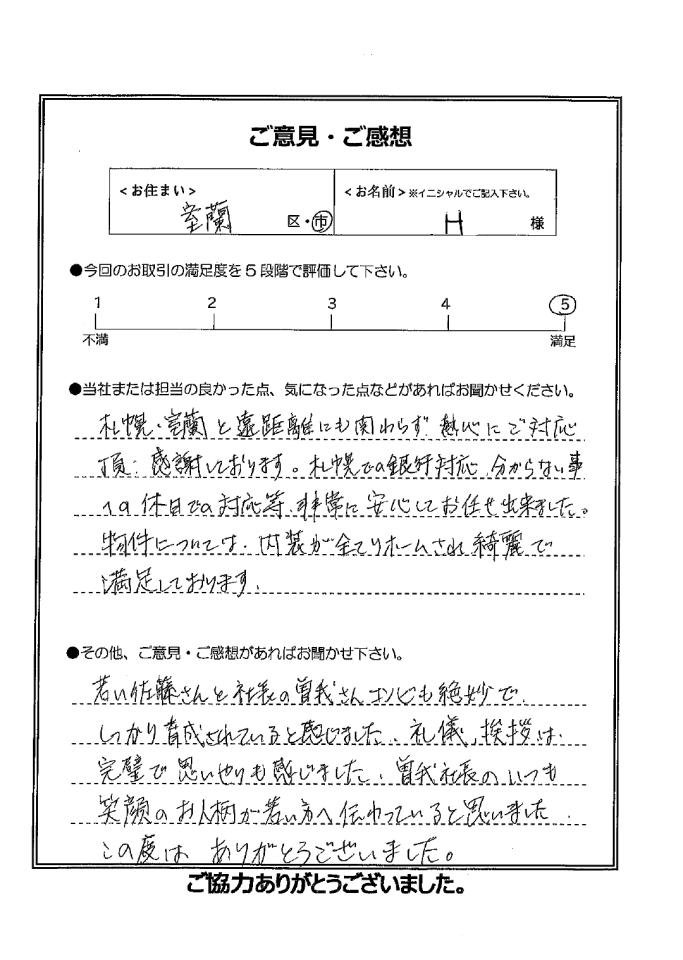 ご意見・ご感想
<お住まい>
室蘭 区・市
<お名前>※イニシャルでご記入下さい。
H 様
●今回のお取引の満足度を5段階で評価して下さい。
1 2 3 4 5
不満 満足
●当社または担当の良かった点、気になった点などがあればお聞かせください。
札幌・室蘭と遠距離にも関わらず、熱心にご対応
頂き感謝しております。札幌での銀行対応、分からない事
への休日での対応等、非常に安心してお任せ出来ました。
物件については、内装が全てリホームされ綺麗で
満足しております。
●その他、ご意見・ご感想があればお聞かせ下さい。
若い佐藤さんと社長の曽我さんコンビも絶妙で、
しっかり育成されていると感じました。礼儀、挨拶は
完璧で思いやりも感じました。曽我社長のいつも
笑顔のお人柄が若い方へ伝わっていると思いました。
この度は ありがとうございました。
ご協力ありがとうございました。